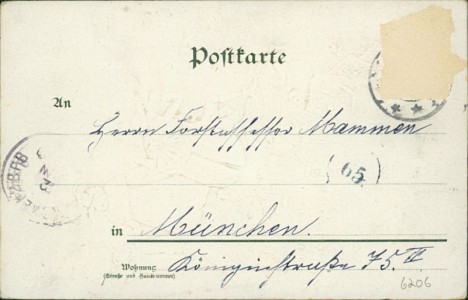 Postkarte
An
Herrn Forstassessor Mammen
(65)
in München.
Wohnung
(Straße und Hausnummer)
Königinstraße 75. II
6206